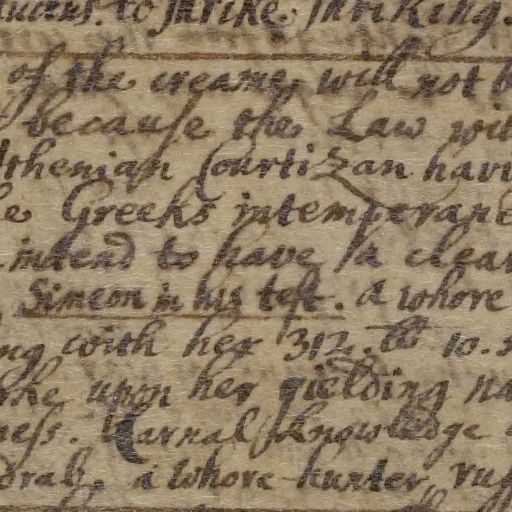 to shrike. shriking.
of the creame, will not b
because the Law wil
thenian Courtizan havi
e Greeks intemperant
intend to have a clear
Simeon in his test. a whore
ng with her 312. 10.
rke upon her yielding na
ness. Carnal knowledge
drab, a whore-hunter, ruf